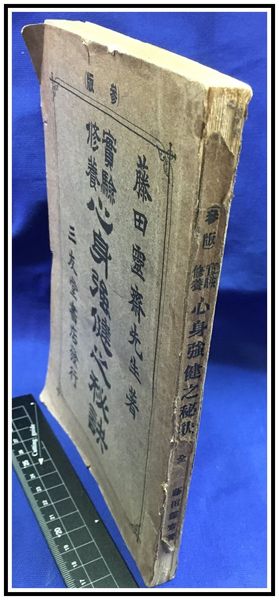 版參
藤田靈齋先生著
實驗
修養
心身強健之秘訣
三友堂書店發行
參版
修養
心身強健之秘訣
全
藤田靈齋著